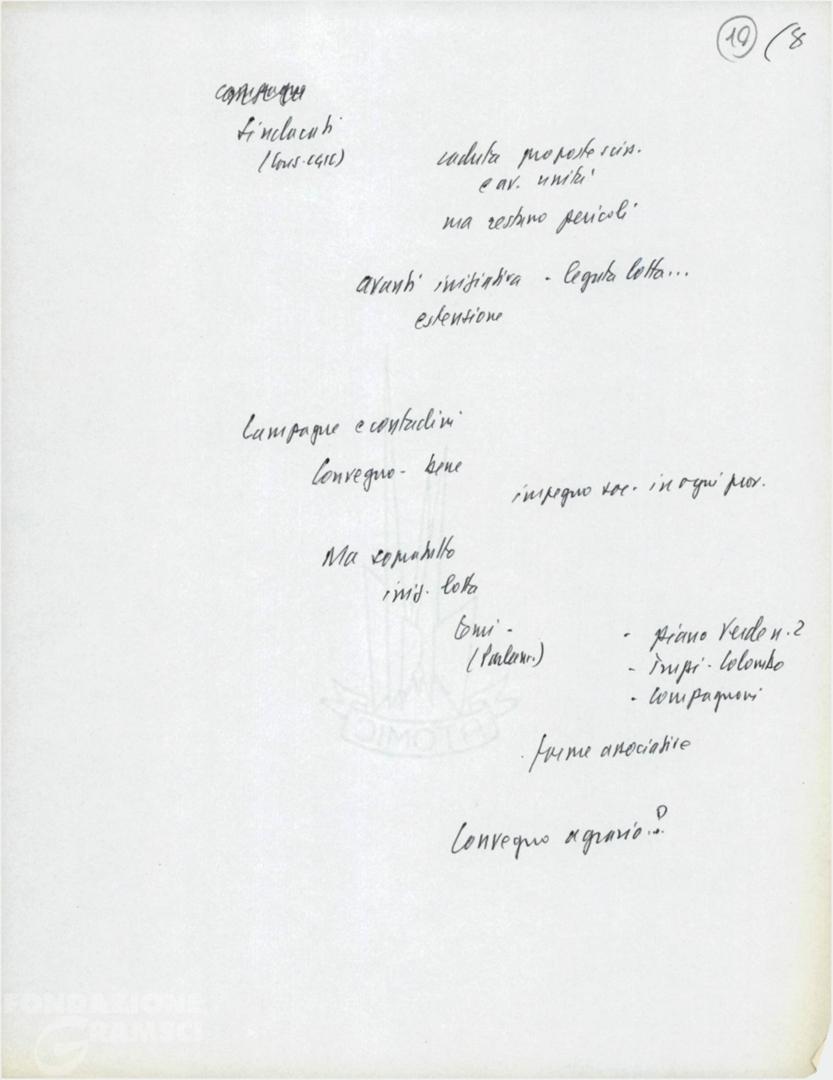 19 / 8
Sindacati
(Cons. CGIL)
caduta proposte scis.
e av. unità
ma restano pericoli
avanti iniziativa - legata lotta...
estensione
Campagne e contadini
Convegno - bene
impegno soc. in ogni prov.
Ma sopratutto
iniz. lotta
Comi -
(Parlam.)
- piano Verde n. 2
- impi - Colombo
- Compagnoni
- forme associative
Convegno agrario..?
ATOMIC
FONDAZIONE
GRAMSCI